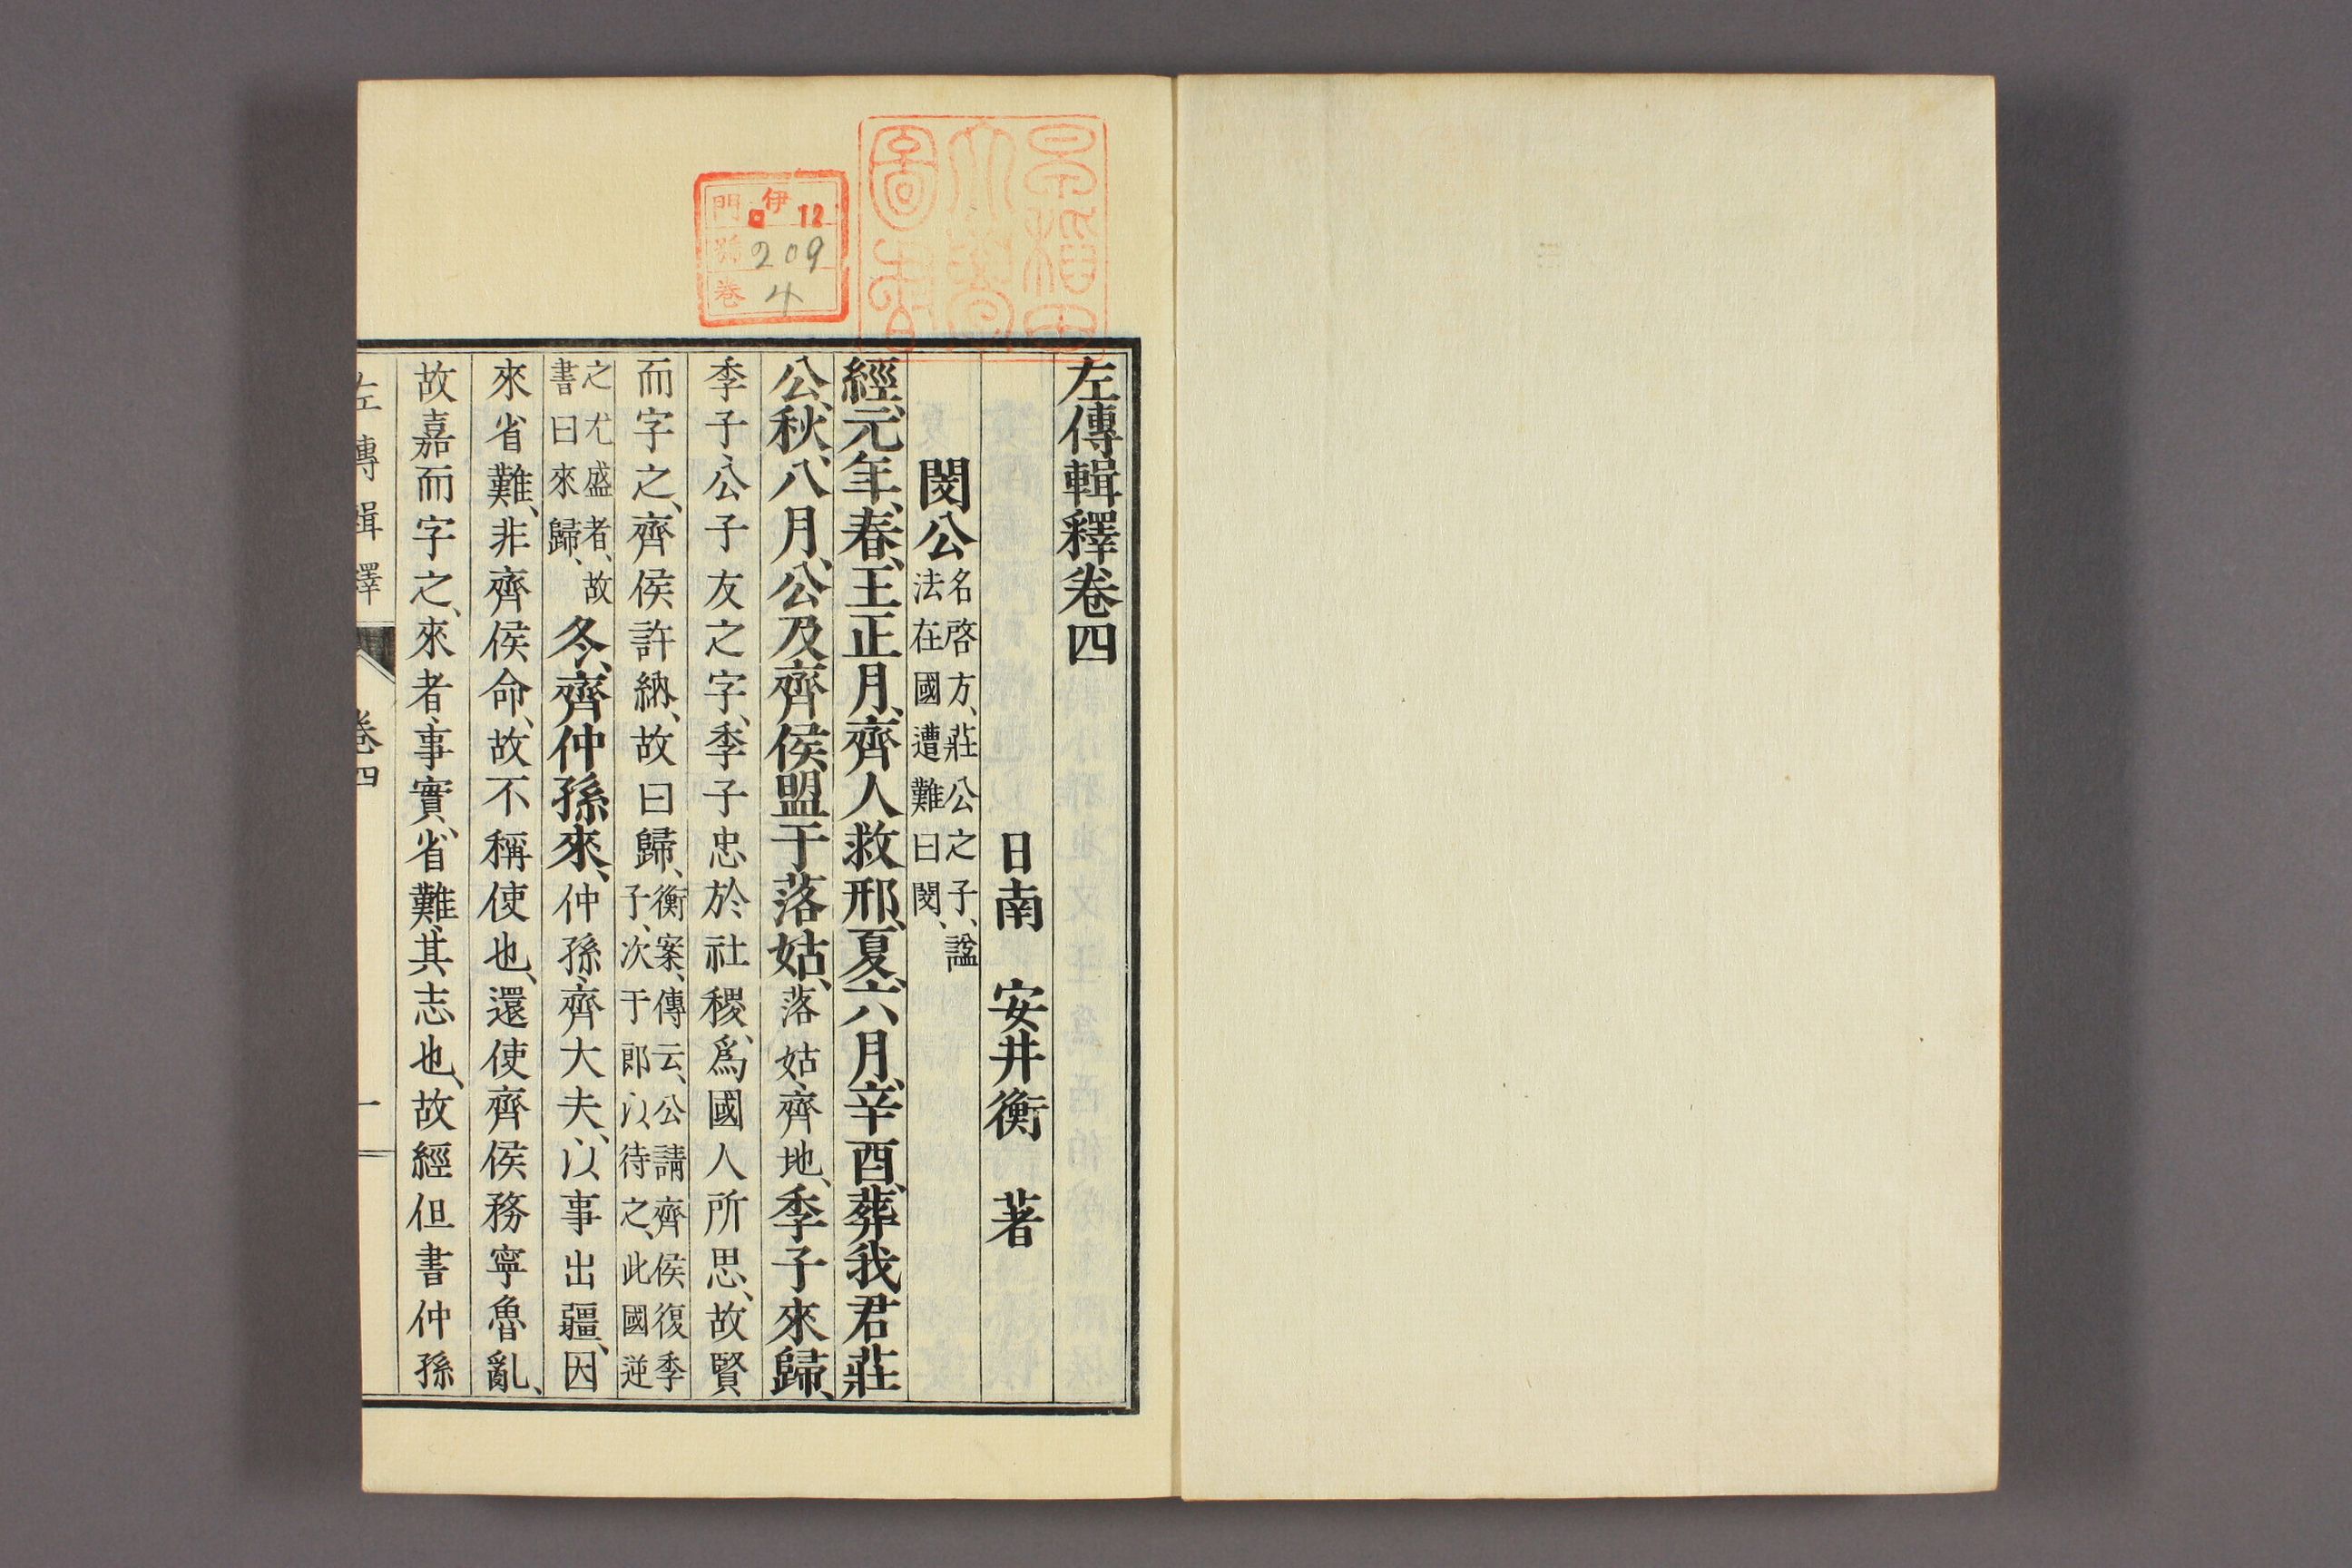 早稻田
大學
圖書
門 伊 12
號 209
卷 4
左傳輯釋卷四
日南 安井衡 著
閔公 名啓方、莊公之子、諡
法在國遭難曰閔、
經、元年、春、王正月、齊人救邢、夏、六月、辛酉、葬我君莊
公、秋、八月、公及齊侯盟于落姑、落姑、齊地、季子來歸、
季子、公子友之字、季子忠於社稷、爲國人所思、故賢
而字之、齊侯許納、故曰歸、衡案、傳云、公請齊侯復季
子、次于郎以待之、此國逆
之尤盛者、故
書曰來歸、冬、齊仲孫來、仲孫、齊大夫、以事出疆、因
來省難、非齊侯命、故不稱使也、還使齊侯務寧魯亂、
故嘉而字之、來者、事實、省難、其志也、故經但書仲孫
左傳輯釋 卷四 一